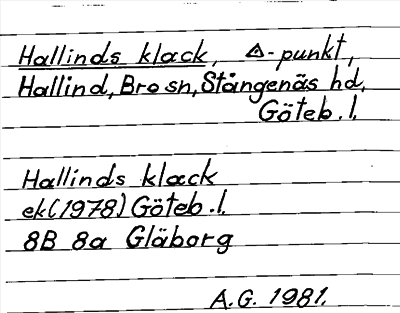 Hallinds klack, △-punkt,
Hallind, Bro sn, Stångenäs hd,
Göteb. l.
Hallinds klack
ek (1978) Göteb. l.
8B 8a Gläborg
A.G. 1981.